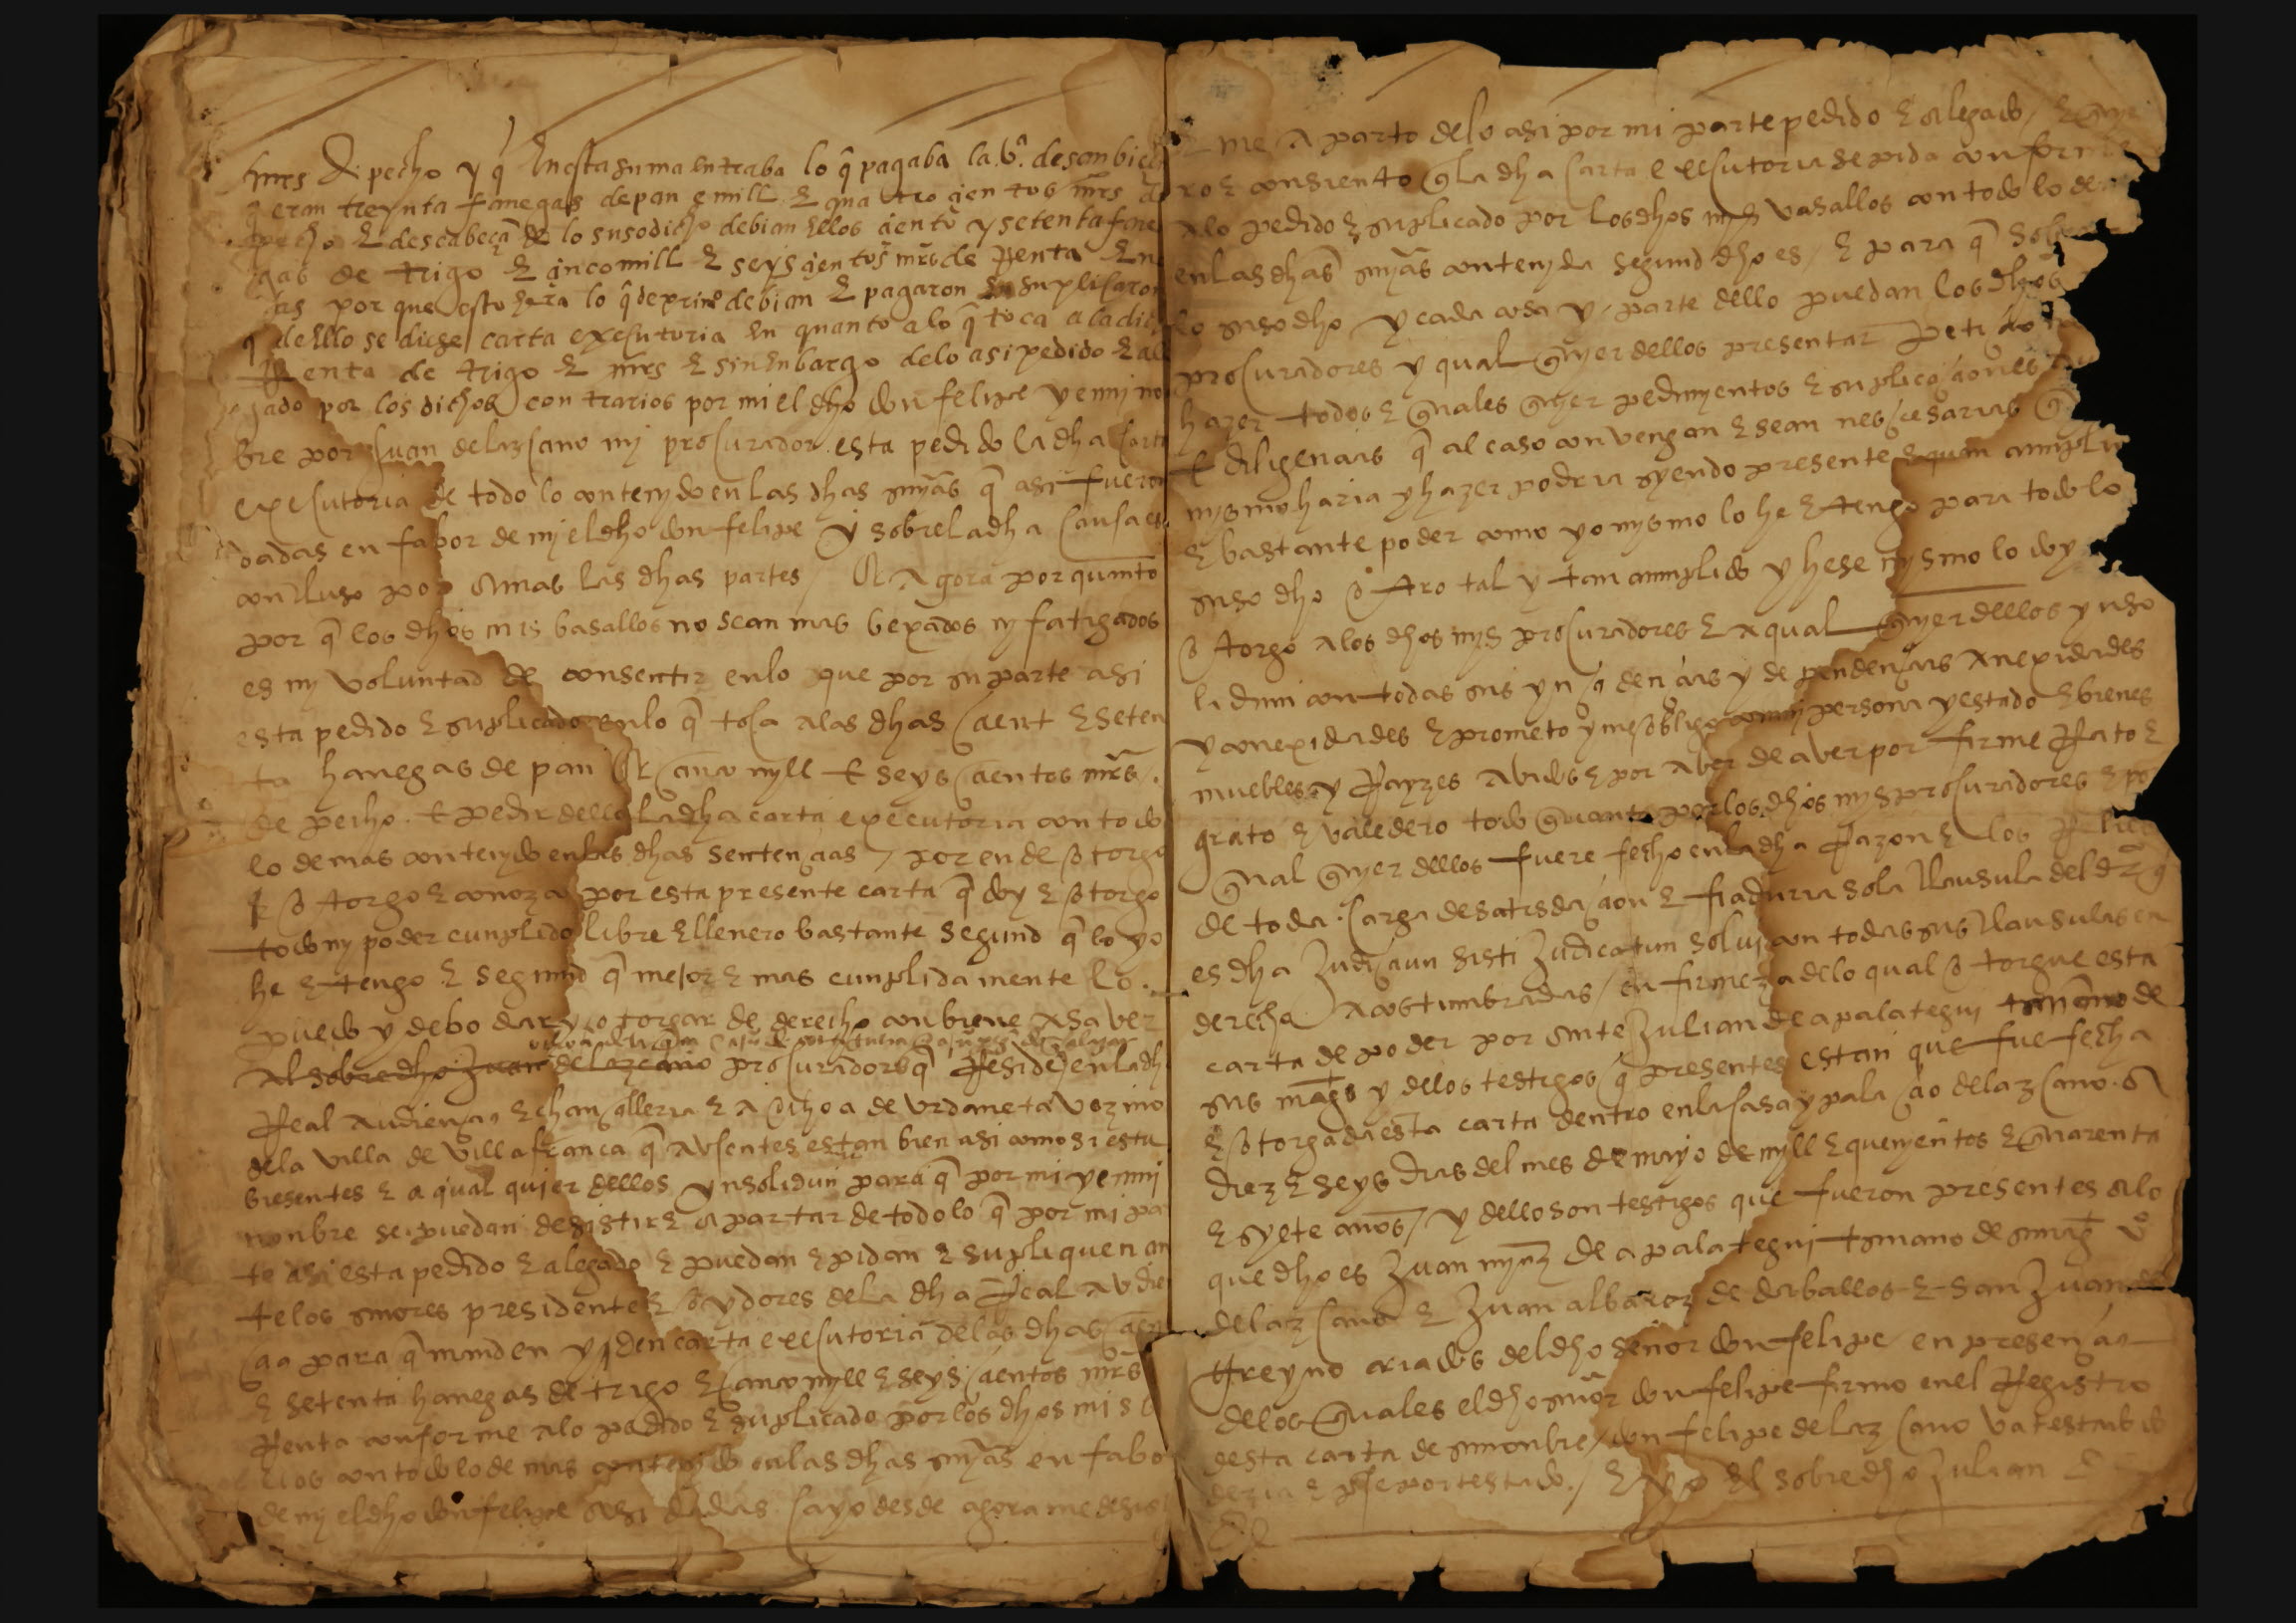 mrs de pecho y q̄ en esta suma entraba lo q̄ pagaba la
q̄ eran treynta fanegas de pan e mill e quatrocientos mrs de
pecho e descabeçan de lo susodicho debian ellos ciento y setenta fane
gas de trigo e cinco mill e seyscientos mrs de Renta en
porque esto hera lo q̄ de debian e pagaron suplicaron
q̄ dello se diese carta executoria en quanto a lo q̄ toca a la dicha
Renta de trigo e mrs e sin enbargo delo asi pedido e ale
gado por los dichos contrarios por mi el dho don felipe y en mi no
bre por Juan de lazcano mj procurador esta pedido la dha carta
executoria de todo lo contenydo en las dhas snyās q̄ asi fueron
dadas en fabor de mj el dho don felipe y sobre la dha causa es
concluso por amas las dhas partes / E Agora por quanto
por q̄ los dhos mis basallos no sean mas bexados nj fatigados
es mj voluntad de consentir en lo que por su parte asi
esta pedido e suplicado en lo q̄ toca a las dhas cient e seten
ta hanegas de pan e cinco myll e seys cientos mrs
de pecho e pedir dello la dha carta executoria con todo
lo demas contenydo en las dhas sentencias / por ende otorgo
e otorgo e conozco por esta presente carta q̄ doy e otorgo
todo mj poder cunplido libre e llenero bastante segund q̄ lo yo
he e tengo e segund q̄ mejor e mas cunplidamente lo
puedo y debo dar y otorgar de derecho conbiene a saber
Al sobredho Juan de lazcano procuradores q̄ Reside en la dh
Real Audiencia e chancilleria e a ochoa de urdaneta vezino
de la villa de villafranca q̄ Absentes estan bien asi como si estu
biesentes e a qual quier dellos ynsolidun para q̄ por mi y en mj
nonbre se puedan desistir e apartar de todo lo q̄ por mi pa
te asi esta pedido e alegado e puedan e pidan e supliquen an
te los snores presidente e oydores de la dha Real Audie
cia para q̄ manden y den carta executoria de las dhas cien
e setenta hanegas de trigo e cinco myll e seys cientos mrs
Renta conforme a lo pedido e suplicado por los dhos mis
con todo lo demas contenydo en las dhas snyās en fabo
de mj el dho don felipe asi dadas cayo desde agora me desis
me Aparto delo asi por mi parte pedido e alegado / e
ro e consiento q̄ la dha carta executoria se pida conforme
a lo pedido e suplicado por los dhos mjs vasallos con todo lo de
en las dhas snyās contenyda segund dho es / e para q̄ sobre
lo susodho y cada cosa y parte dello puedan los dhos
procuradores y qual quyer dellos presentar peticio
hazer todos e quales quyer pedimyentos e suplicaciones
e diligencias q̄ al caso convengan e sean nescesarias q̄
mysmo haria y hazer podria syendo presente e quan cunplido
e bastante poder como yo mysmo lo he e tengo para todo lo
susodho otro tal y tan cunplido y hese mysmo lo doy
otorgo a los dhos mjs procuradores e a qual quyer dellos ynso
lidun con todas sus yncidencias y dependencias anexidades
y conexidades e prometo y me obligo con mj persona y estado e bienes
muebles y Rayzes avidos e por aber de aver por firme Rato e
grato e valedero todo quanto por los dhos mjs procuradores e por
qual quyer dellos fuere fecho en la dha Razon e los Relieb
de toda carga de satisdacion e fiaduria so la clausula del dr̄o q̄
es dha Judicium sisti Judicatum solui con todas sus clausulas en
derecho acostumbradas / en firmeza de lo qual otorgue esta
carta de poder por ante Julian de apalategui de
sus mags y de los testigos q̄ presentes estan que fue fecha
e otorgada esta carta dentro en la casa y palacio de lazcano a
diez e seys dias del mes de mayo de myll e quinyentos e quarenta
e syete anos / y dello son testigos que fueron presentes a lo
que dho es Juan de apalategui
de lazcano e Juan albarez de darballos e san Juan de
criados del dho señor don felipe en presencia
de los quales el dho snor don felipe firmo en el Registro
desta carta de su nonbre / don felipe de lazcano va testado do
dezia e pase por testado / E yo el sobredho Julian